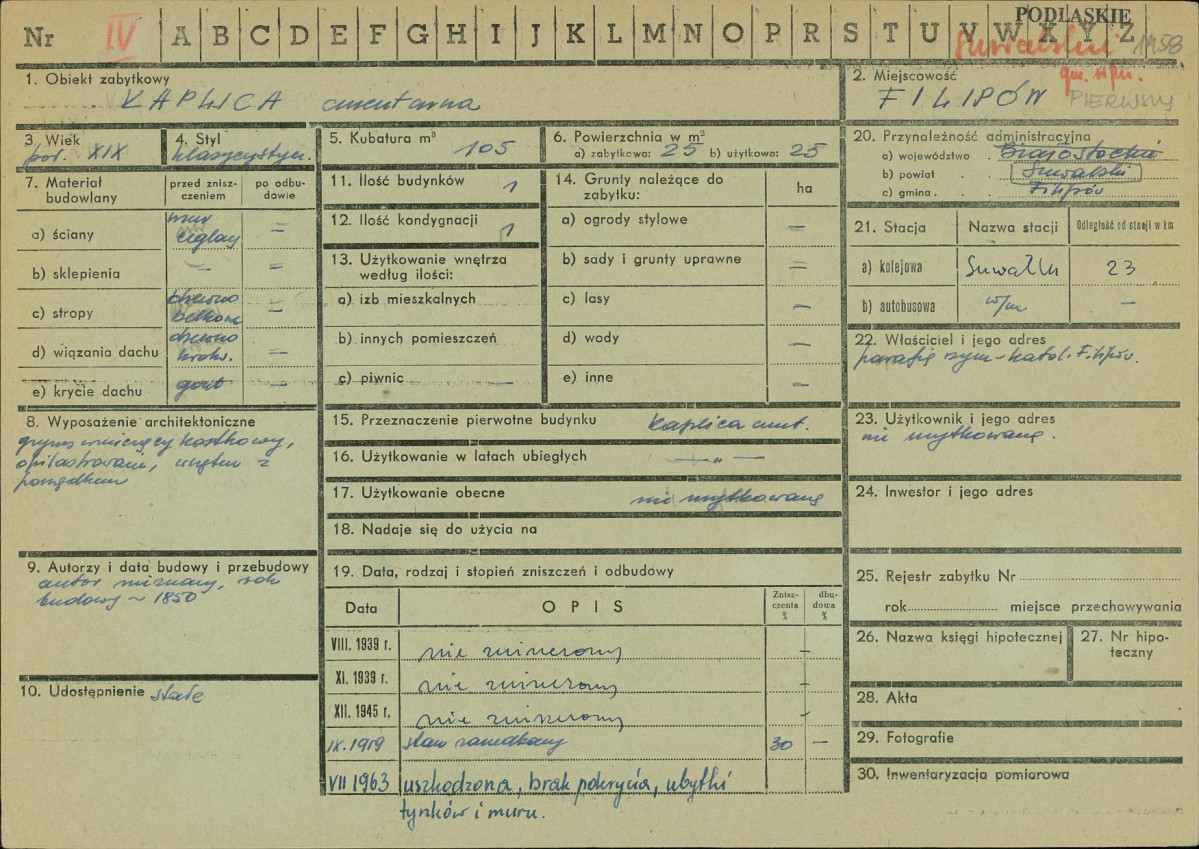 PODLASKIE
Nr IV A B C D E F G H I J K L M N O P R S T U V W X Y Z
Suwalski 1958
1. Obiekt zabytkowy
KAPLICA cmentarna
2. Miejscowość
FILIPÓW PIERWSZY
3. Wiek
poł. XIX
4. Styl
klasycystycz.
5. Kubatura m³ 105
6. Powierzchnia w m²
a) zabytkowa: 25 b) użytkowa: 25
20. Przynależność administracyjna
a) województwo . Białostockie
b) powiat . . Suwalski
c) gmina . . Filipów
7. Materiał budowlany
przed zniszczeniem
po odbudowie
a) ściany mur ceglany =
b) sklepienia – =
c) stropy drewno belkowe –
d) wiązania dachu drewno krokw. =
e) krycie dachu gont –
11. Ilość budynków 1
12. Ilość kondygnacji 1
13. Użytkowanie wnętrza według ilości:
a) izb mieszkalnych
b) innych pomieszczeń
c) piwnic –
14. Grunty należące do zabytku: ha
a) ogrody stylowe –
b) sady i grunty uprawne =
c) lasy –
d) wody –
e) inne –
21. Stacja Nazwa stacji Odległość od stacji w km
a) kolejowa Suwałki 23
b) autobusowa w/m –
22. Właściciel i jego adres
parafia rzym-katol. Filipów.
8. Wyposażenie architektoniczne
gzyms wieńczący kostkowy,
opilastrowanie, wnętrze z
15. Przeznaczenie pierwotne budynku kaplica cmt.
16. Użytkowanie w latach ubiegłych – „ –
17. Użytkowanie obecne nie użytkowana
18. Nadaje się do użycia na
23. Użytkownik i jego adres
nie użytkowana.
24. Inwestor i jego adres
9. Autorzy i data budowy i przebudowy
autor nieznany, rok
budowy ~ 1850
10. Udostępnienie stałe
19. Data, rodzaj i stopień zniszczeń i odbudowy
Data OPIS Zniszczenia % dbudowa %
VIII. 1939 r. nie zniszczony –
XI. 1939 r. nie zniszczony –
XII. 1945 r. nie zniszczony –
IX. 1959 stan zaniedbany 30 –
VII 1963 uszkodzona, brak pokrycia, ubytki
tynków i muru.
25. Rejestr zabytku Nr
rok miejsce przechowywania
26. Nazwa księgi hipotecznej
27. Nr hipoteczny
28. Akta
29. Fotografie
30. Inwentaryzacja pomiarowa